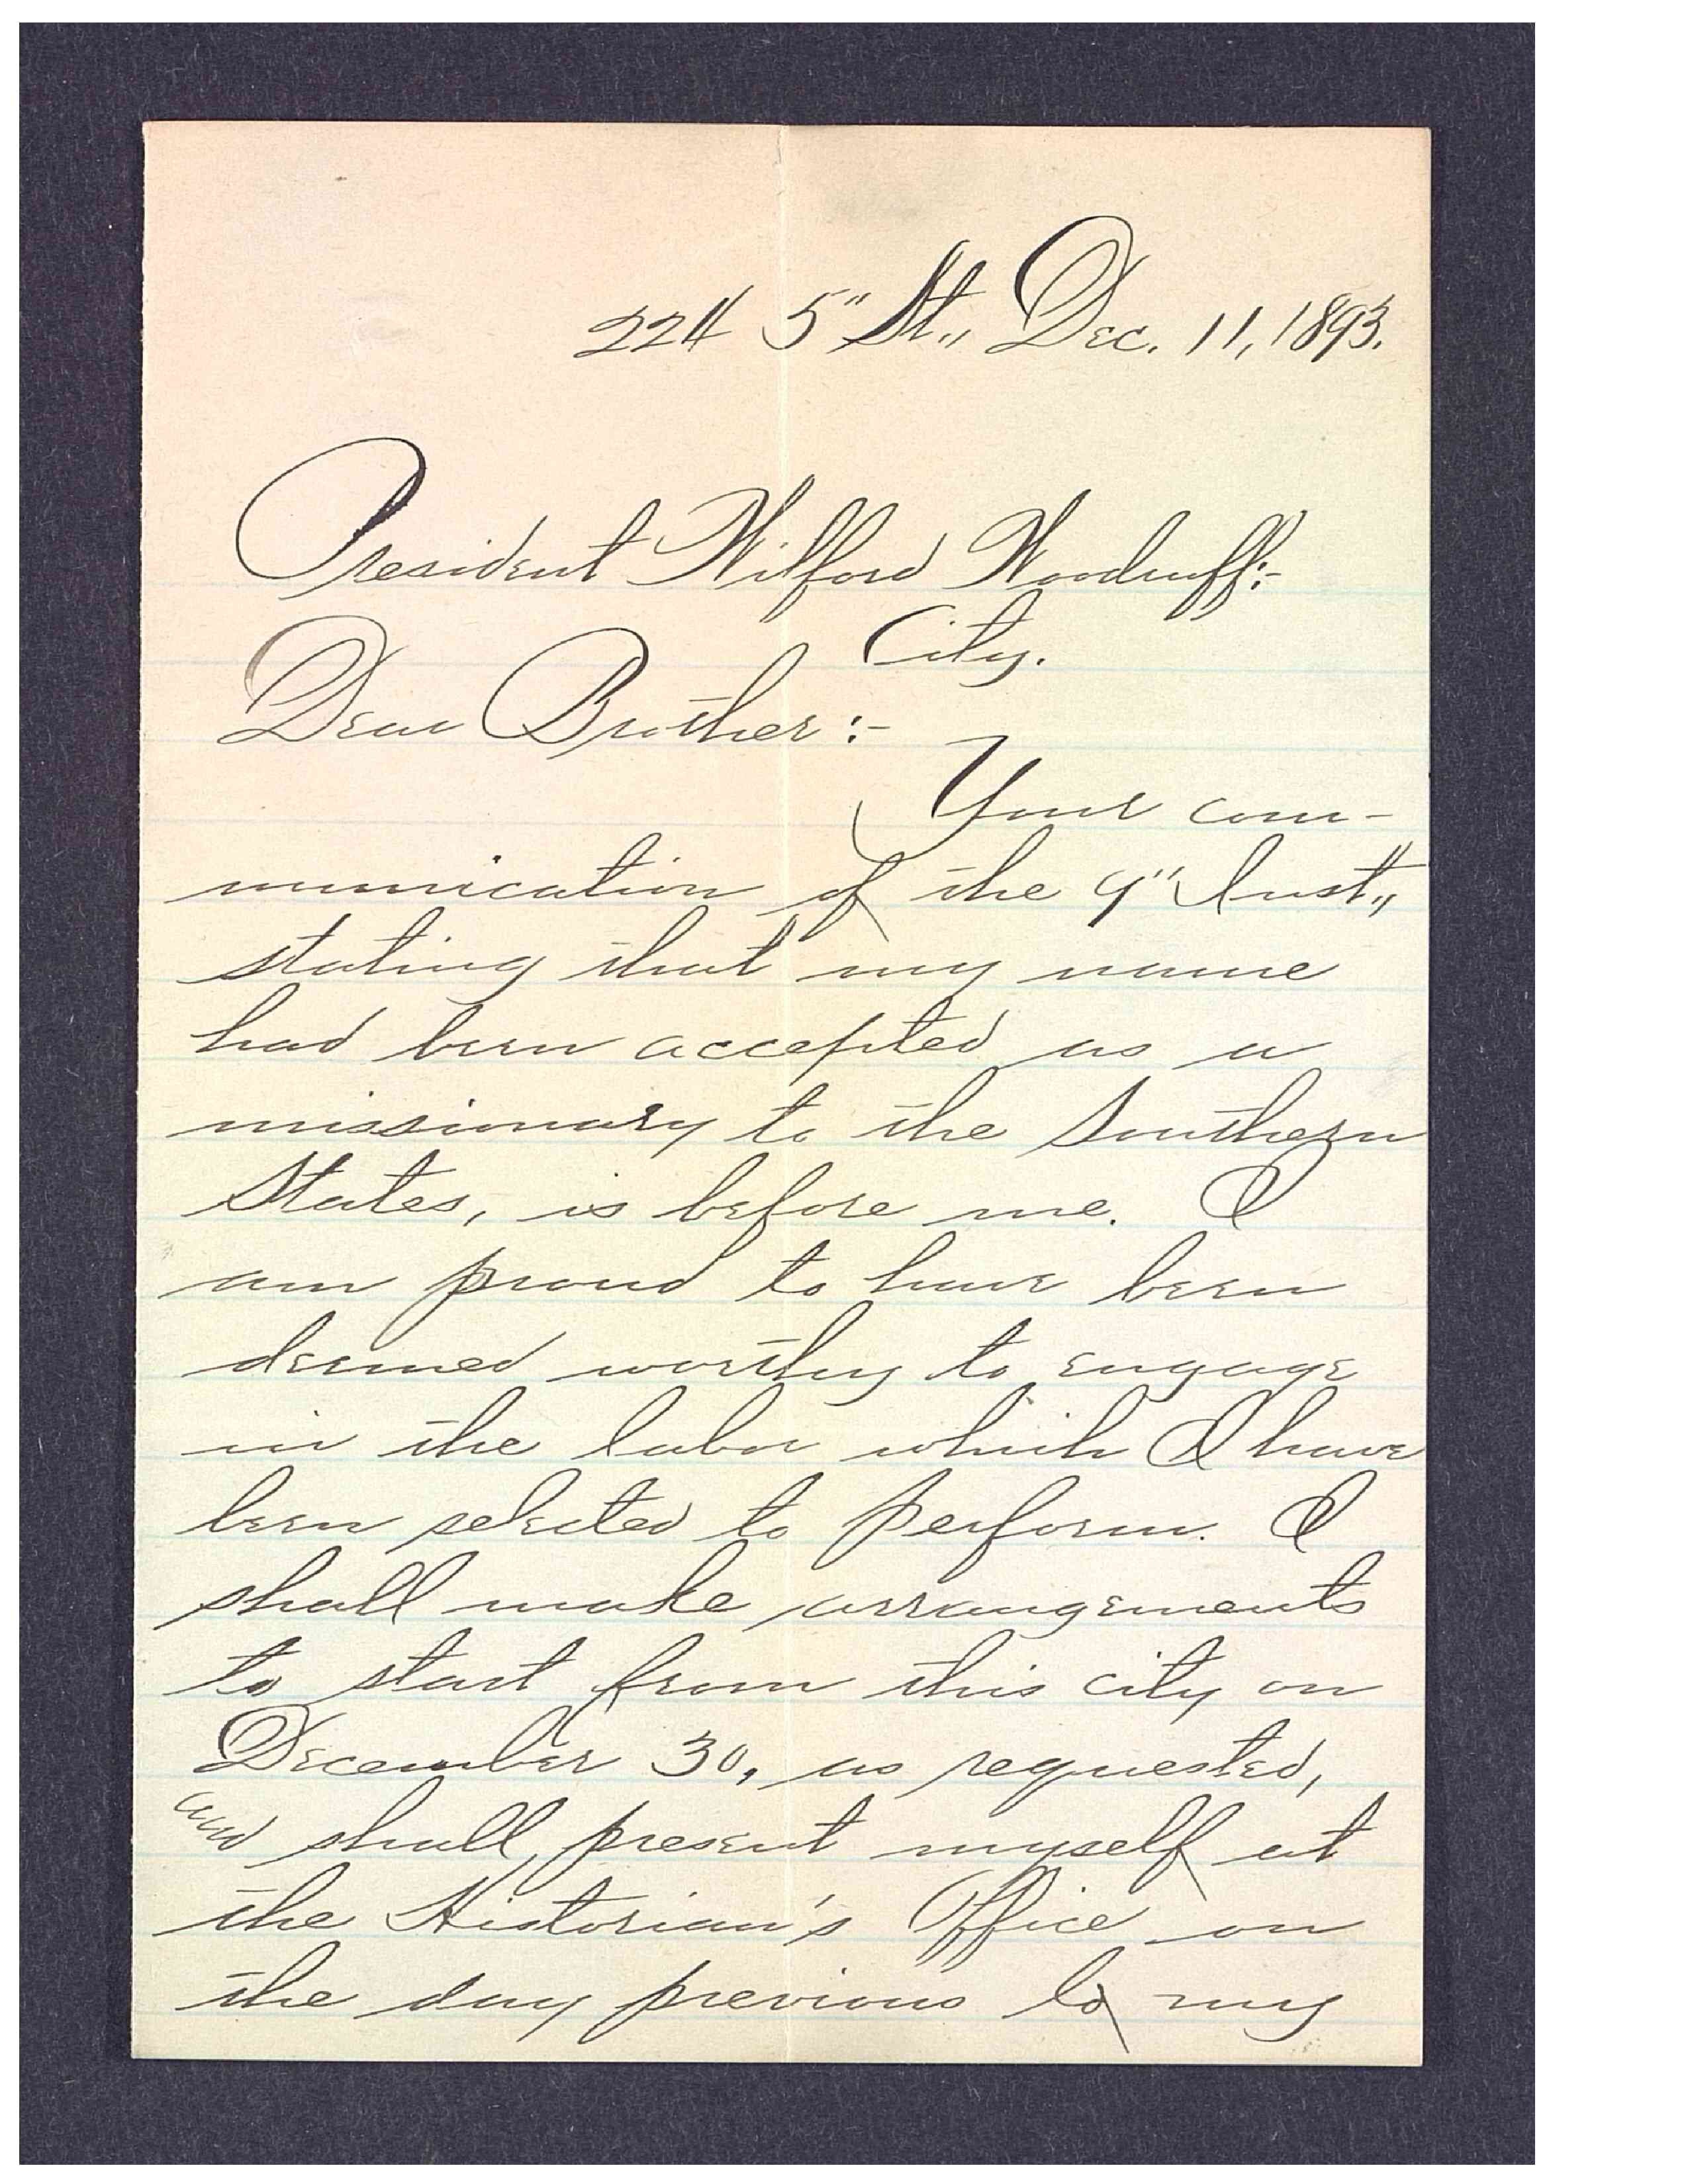 224 5" St., Dec. 11, 1893.
President Wilford Woodruff:-
City.
Dear Brother:-
Your com-
munication of the 9" Inst.,
stating that my name
had been accepted as a
missionary to the Southern
States, is before me. I
am proud to have been
deemed worthy to engage
in the labor which I have
been selected to perform. I
shall make arrangements
to start from this city on
December 30, as requested,
and shall present myself at
the Historian's Office on
the day previous to my